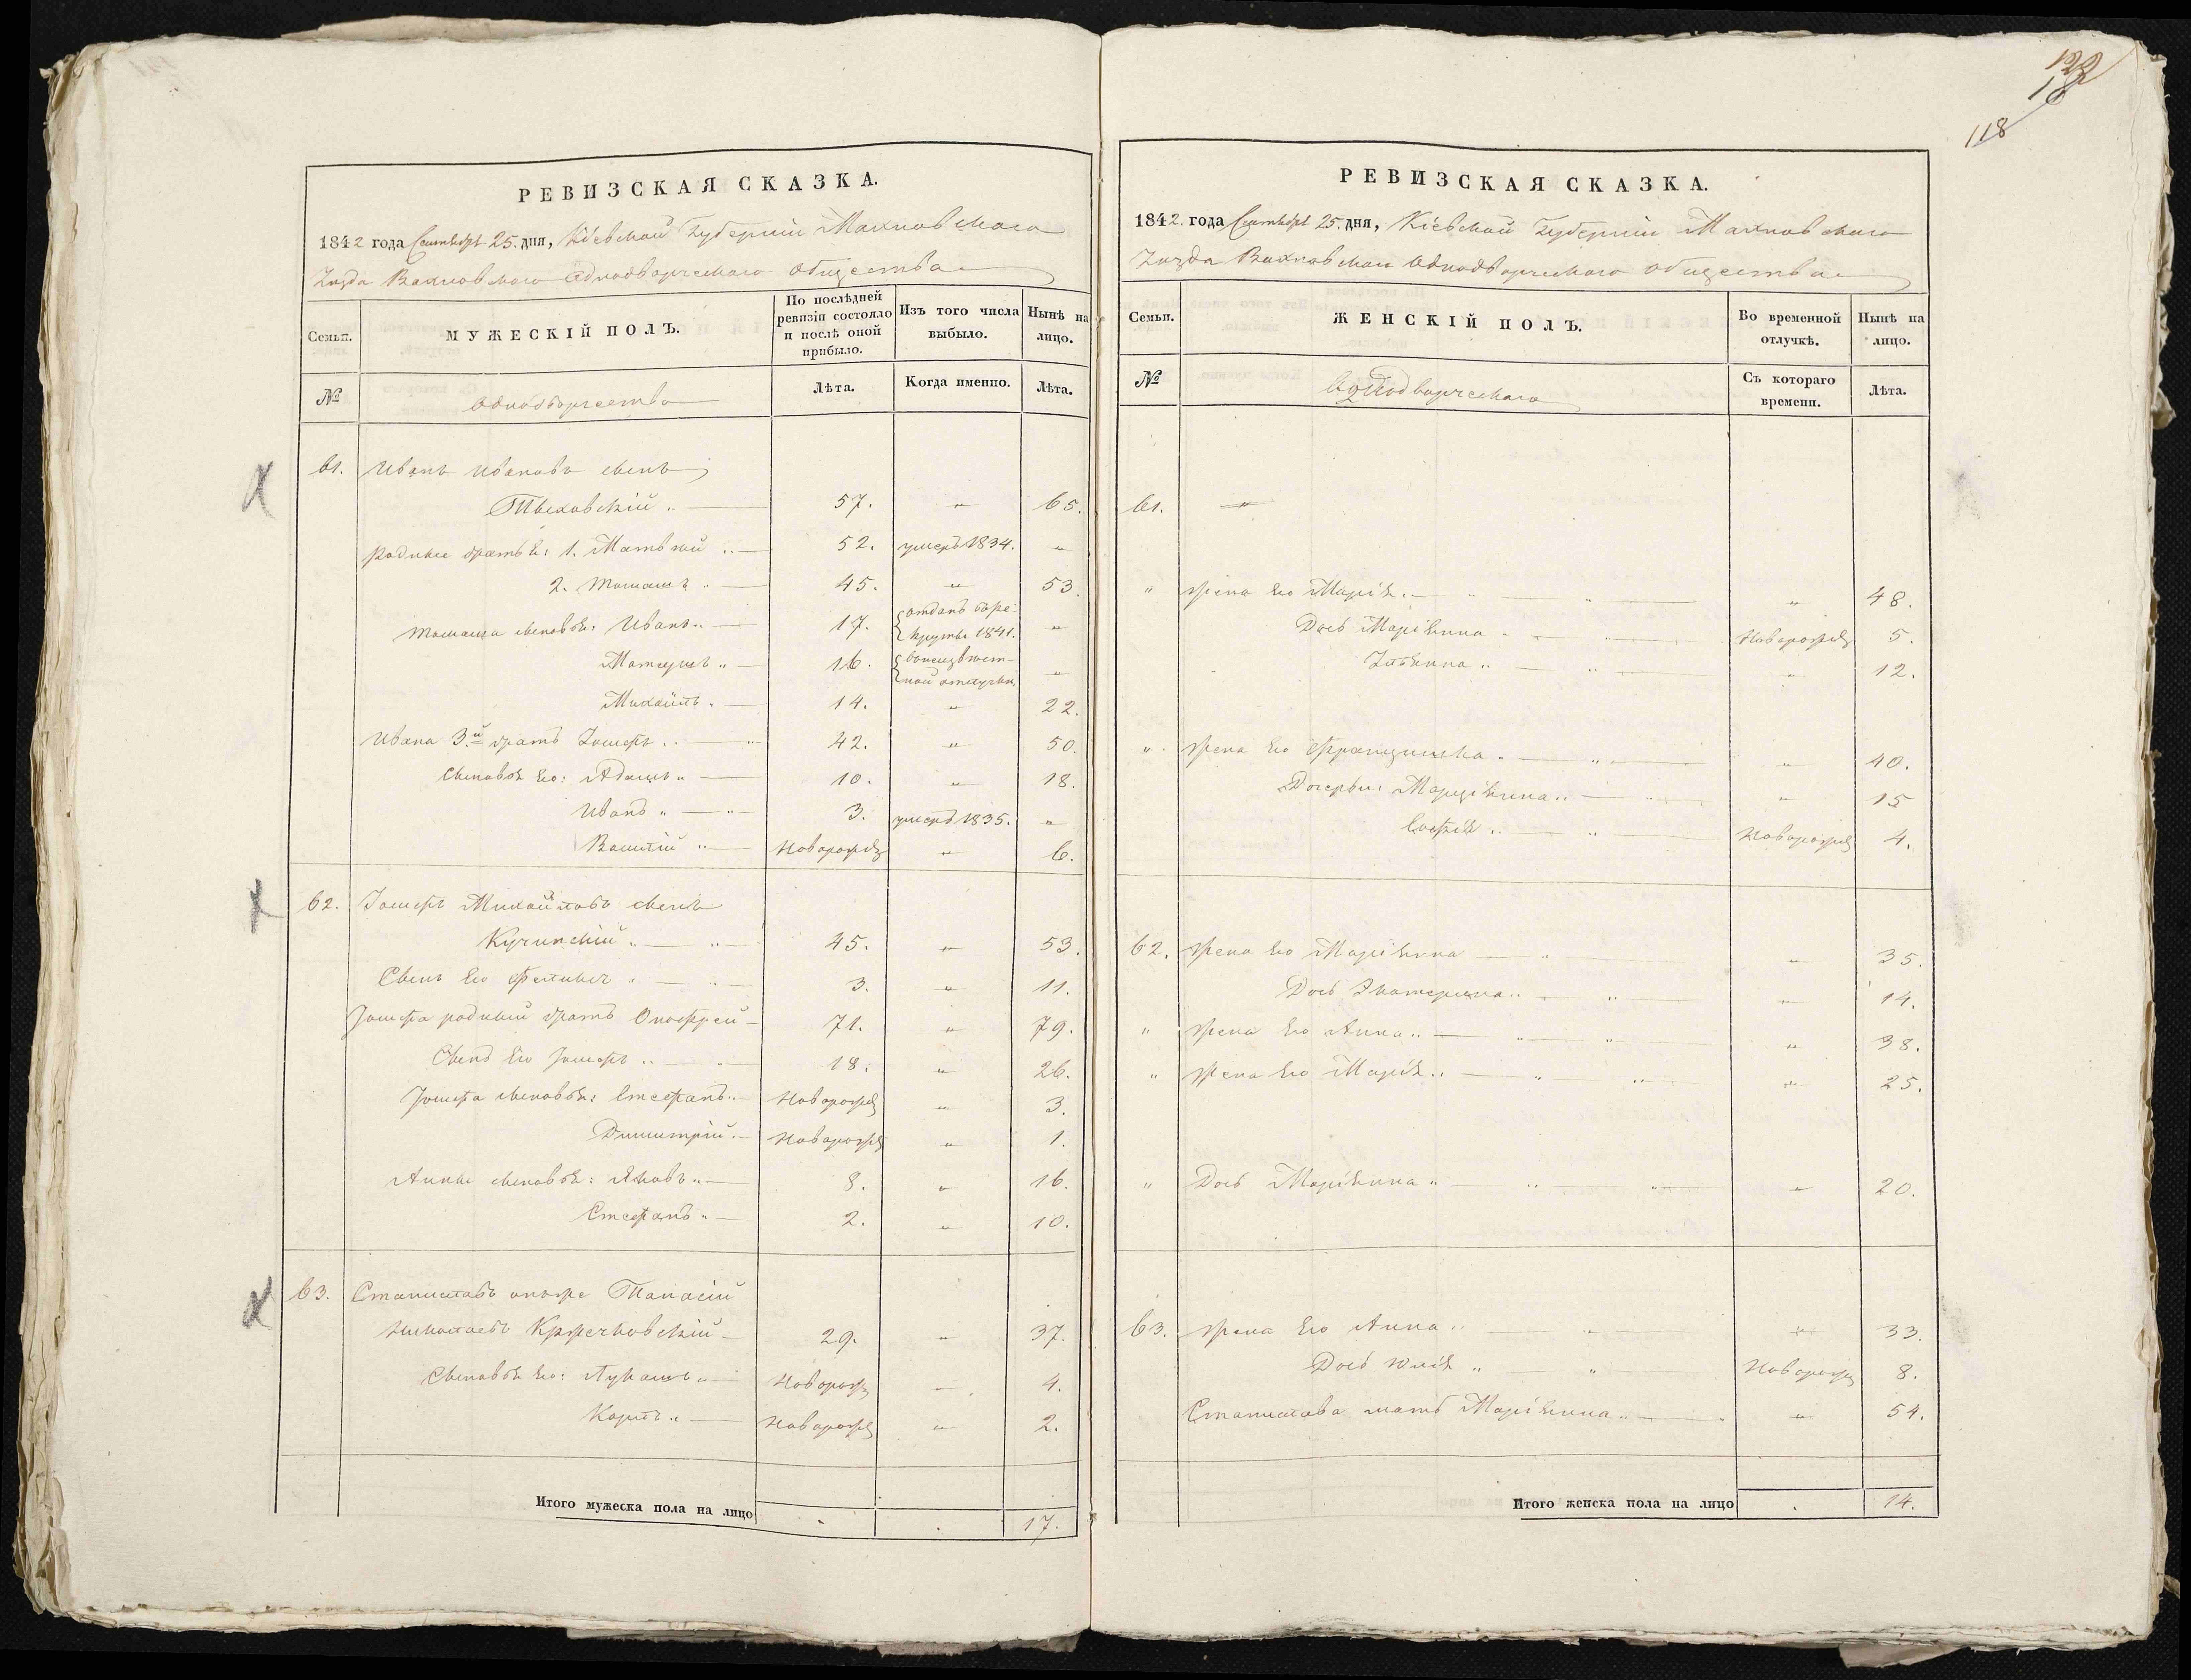 122
118
РЕВИЗСКАЯ СКАЗКА.
1842 года Сентября 25. дня, Кіевской Губерніи Махновскаго
Уѣзда Вахновскаго Однодворческаго общества
Семьи.
МУЖЕСКІЙ ПОЛЪ.
По послѣдней ревизіи состояло и послѣ оной прибыло.
Изъ того числа выбыло.
Нынѣ на лицо.
№
Однодворчества
Лѣта.
Когда именно.
Лѣта.
61. Иванъ Ивановъ сынъ
57. „ 65.
родные братья: 1. Матвѣй „ 52. умеръ 1834. „
2. Томашъ „ 45. „ 53.
Томаша сыновья: Иванъ „ 17. отданъ въ рекруты 1841. „
Матеушъ „ 16. въ неизвѣстной отлучкѣ „
Михайлъ „ 14. „ 22.
Ивана 3.й братъ Іосифъ „ 42. „ 50.
Сыновья его: Адамъ „ 10. „ 18.
Иванъ „ 3. умеръ 1835. „
Василій „ Новорожд „ 6.
62. Іосифъ Михайловъ сынъ
Кучинскій „ 45. „ 53.
Сынъ его Феликсъ „ 3. „ 11.
Іосифа родный братъ Онофрей 71. „ 79.
Сынъ его Іосифъ „ 18. „ 26.
Іосифа сыновья: Стефанъ „ Новорожд „ 3.
Димитрій „ Новорожд „ 1.
Анны сыновья: Яковъ „ 8. „ 16.
Стефанъ „ 2. „ 10.
63. Станиславъ онъже
29. „ 37.
Сыновья его: Лукашъ „ Новорожд „ 4.
Новорожд „ 2.
Итого мужеска пола на лицо 17.
РЕВИЗСКАЯ СКАЗКА.
1842. года Сентября 25. дня, Кіевской Губерніи Махновскаго
Уѣзда Вахновскаго Однодворческаго общества
Семьи.
ЖЕНСКІЙ ПОЛЪ.
Во временной отлучкѣ.
Нынѣ на лицо.
№
Однодворческаго
Съ котораго времени.
Лѣта.
61. „
„ Жена его Марія „ „ 48.
Дочь Маріянна „ Новорожд 5.
„ 12.
„ Жена его Францишка „ „ 40.
Дочери: „ 15
Софія „ Новорожд 4.
62. Жена его Маріянна „ „ 35.
Дочь Екатерина „ „ 14.
„ Жена его Анна „ „ 38.
„ Жена его Марія „ „ 25.
„ Дочь Маріянна „ „ 20.
63. Жена его Анна „ „ 33.
Дочь Юлія „ Новорожд 8.
Станислава мать Маріянна „ „ 54.
Итого женска пола на лицо 14.